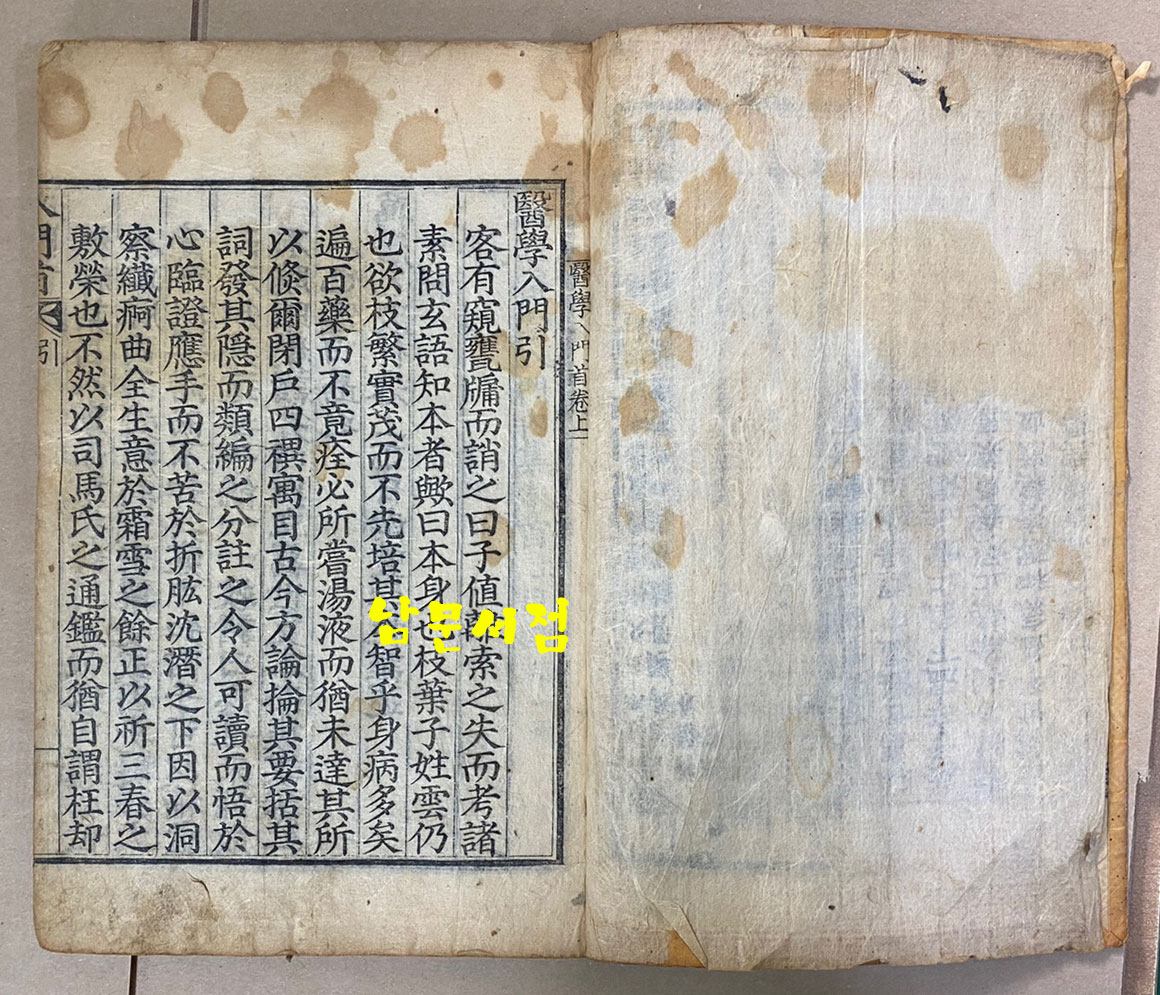 醫學入門首卷上
醫學入門引
客有窺甕牖而誚之曰子値索之失而考諸
素問玄語知本者歟曰本身也枝葉子姓雲仍
也欲枝繁實茂而不先培其本智乎身病多矣
遍百藥而不竟痊必所嘗湯液而猶未達其所
以倐爾閉戶四禩寓目古今方論掄其要括其
詞發其隱而類編之分註之令人可讀而悟於
心臨證應手而不苦於折肱沈潛之下因以洞
察纖痾曲全生意於霜雪之餘正以祈三春之
敷榮也不然以司馬氏之通鑑而猶自謂枉却
入門首 引
남문서점